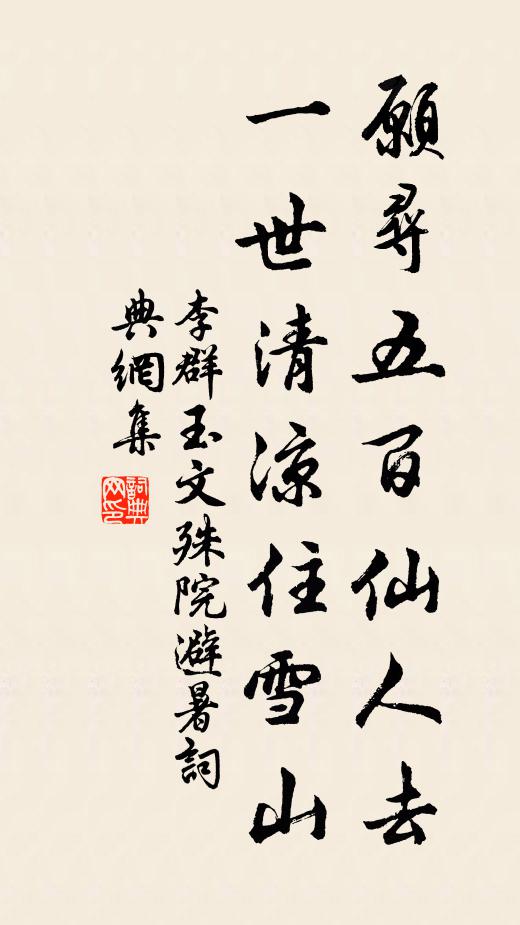 願尋五百仙人去
一世清凉住雪山
李群玉文殊院避暑詞
典網集
詞典网印